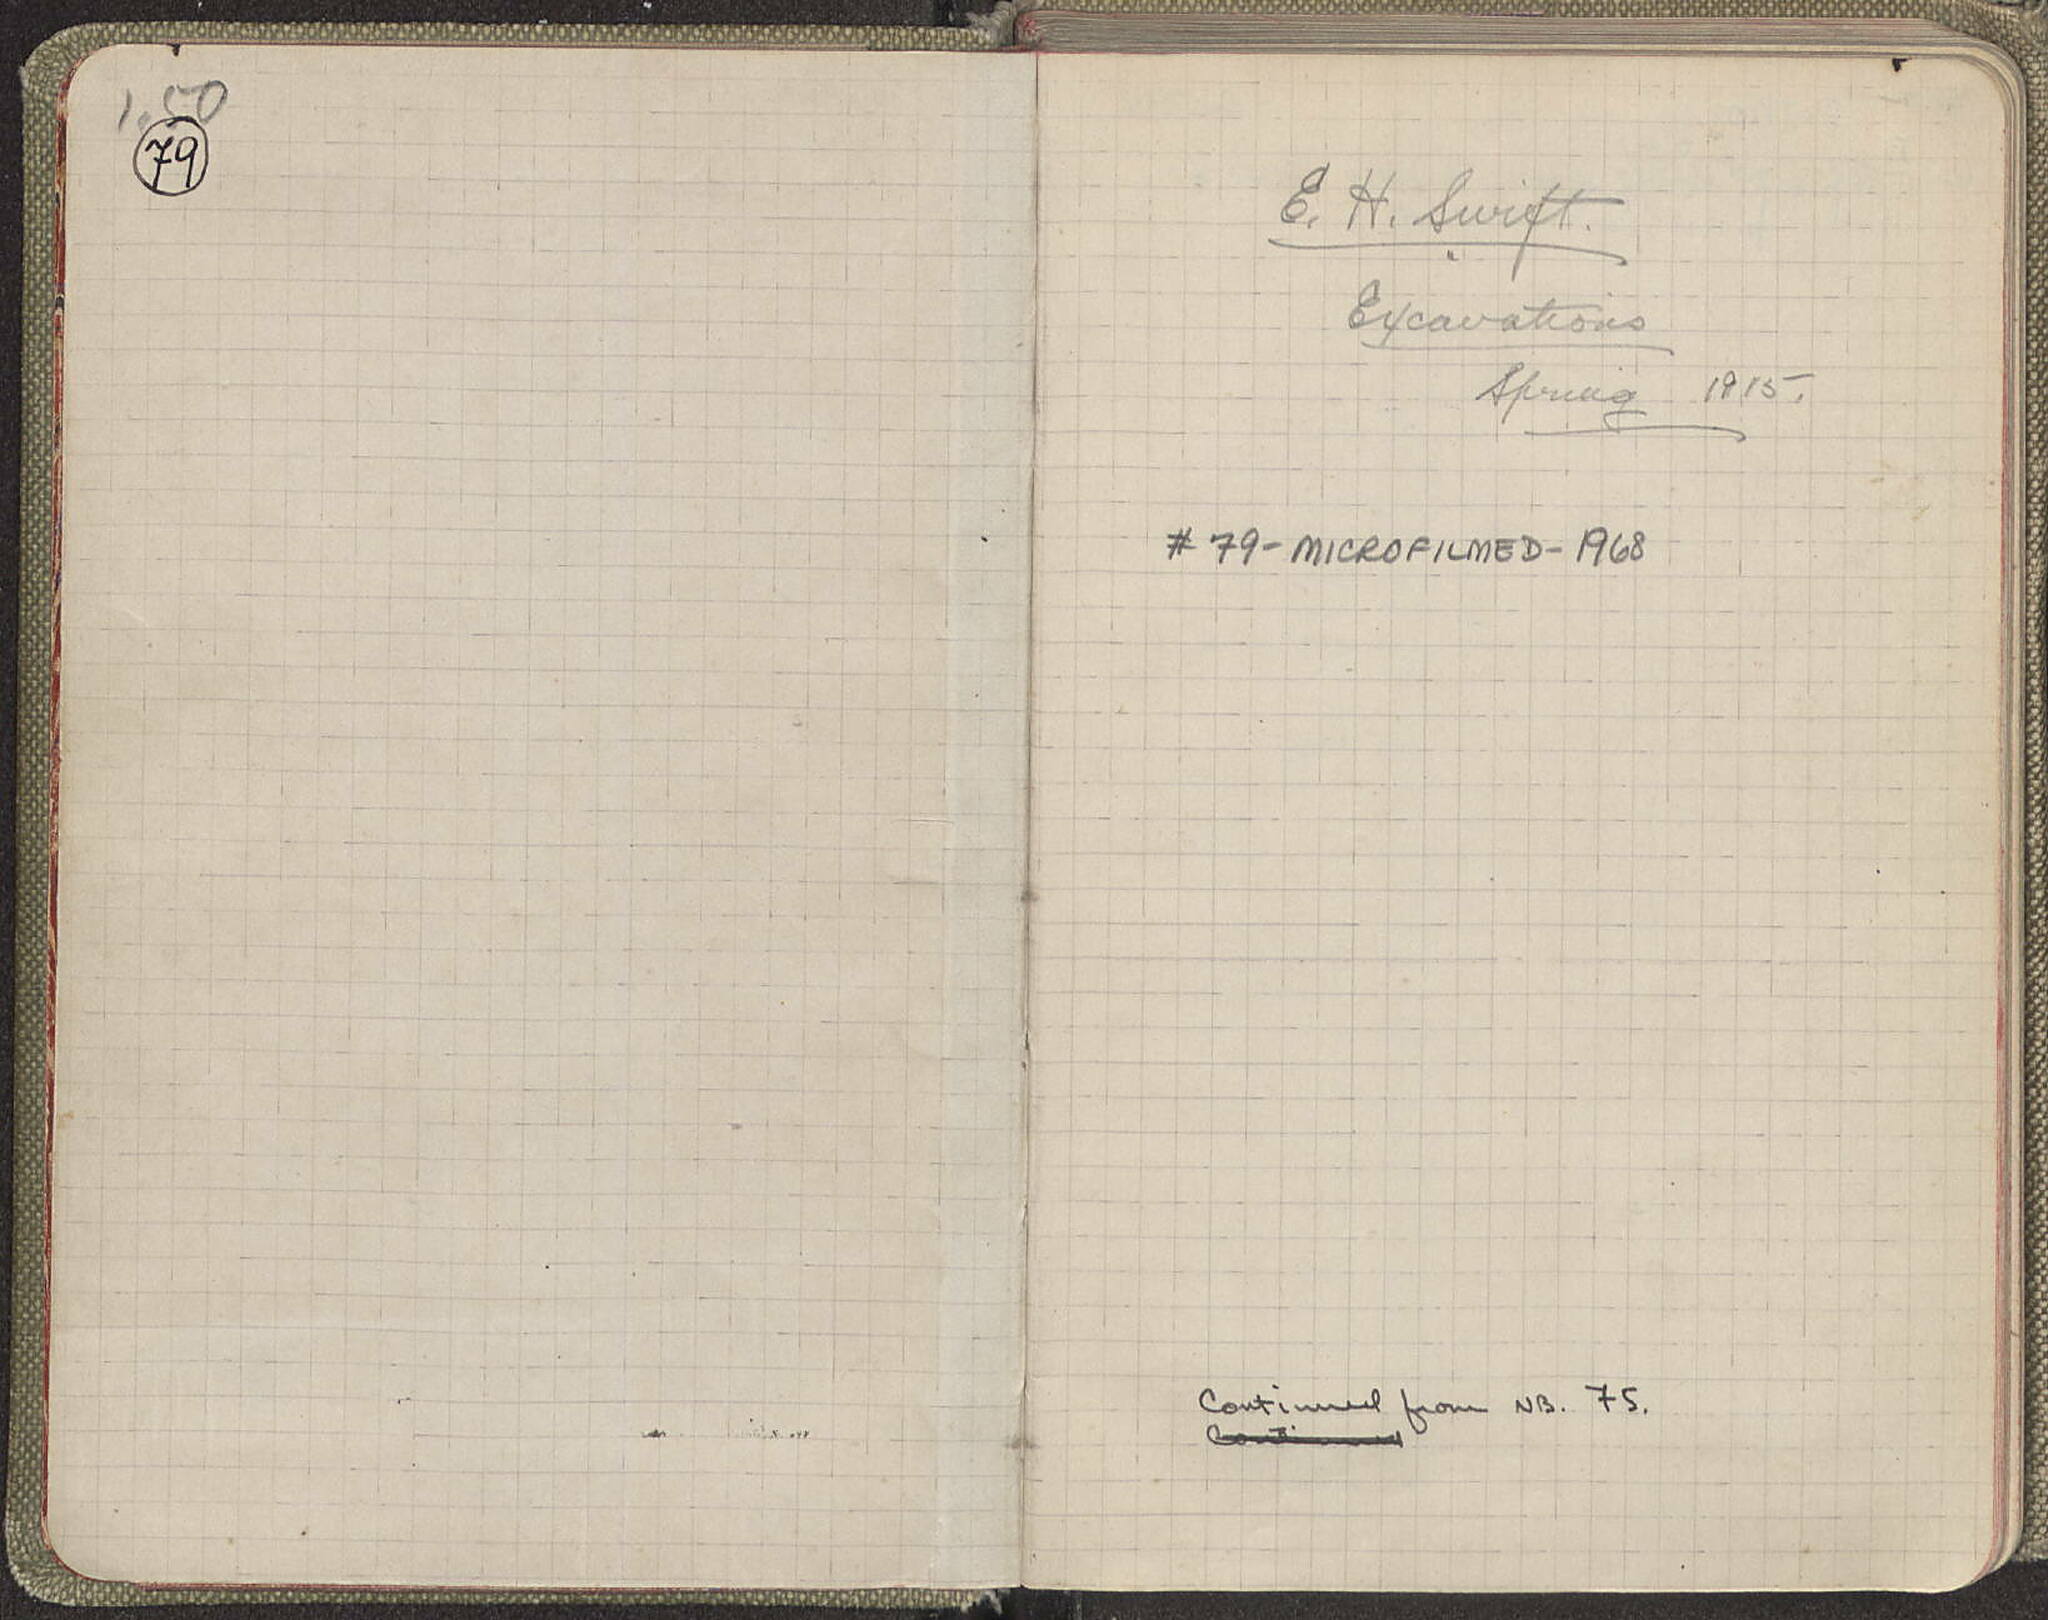 1.50
79
E. H. Swift.
Excavations
Spring 1915.
# 79 - MICROFILMED - 1968
Continued from NB. 75.
Continued